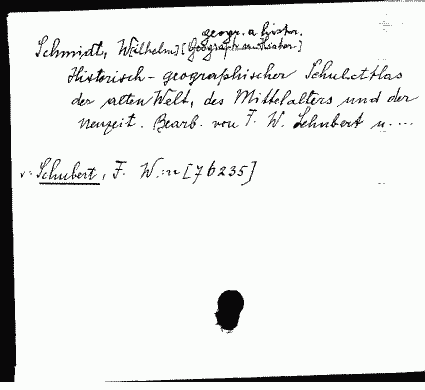 geogr. a. histor.
Schmidt, W[ilhelm] [Geograph um Histor]
Historisch-geographischer Schulatlas
der alten Welt, des Mittelalters und der
Neuzeit. Bearb. von F. W. Schubert u. ...
v: Schubert, F. W. :u [76235]